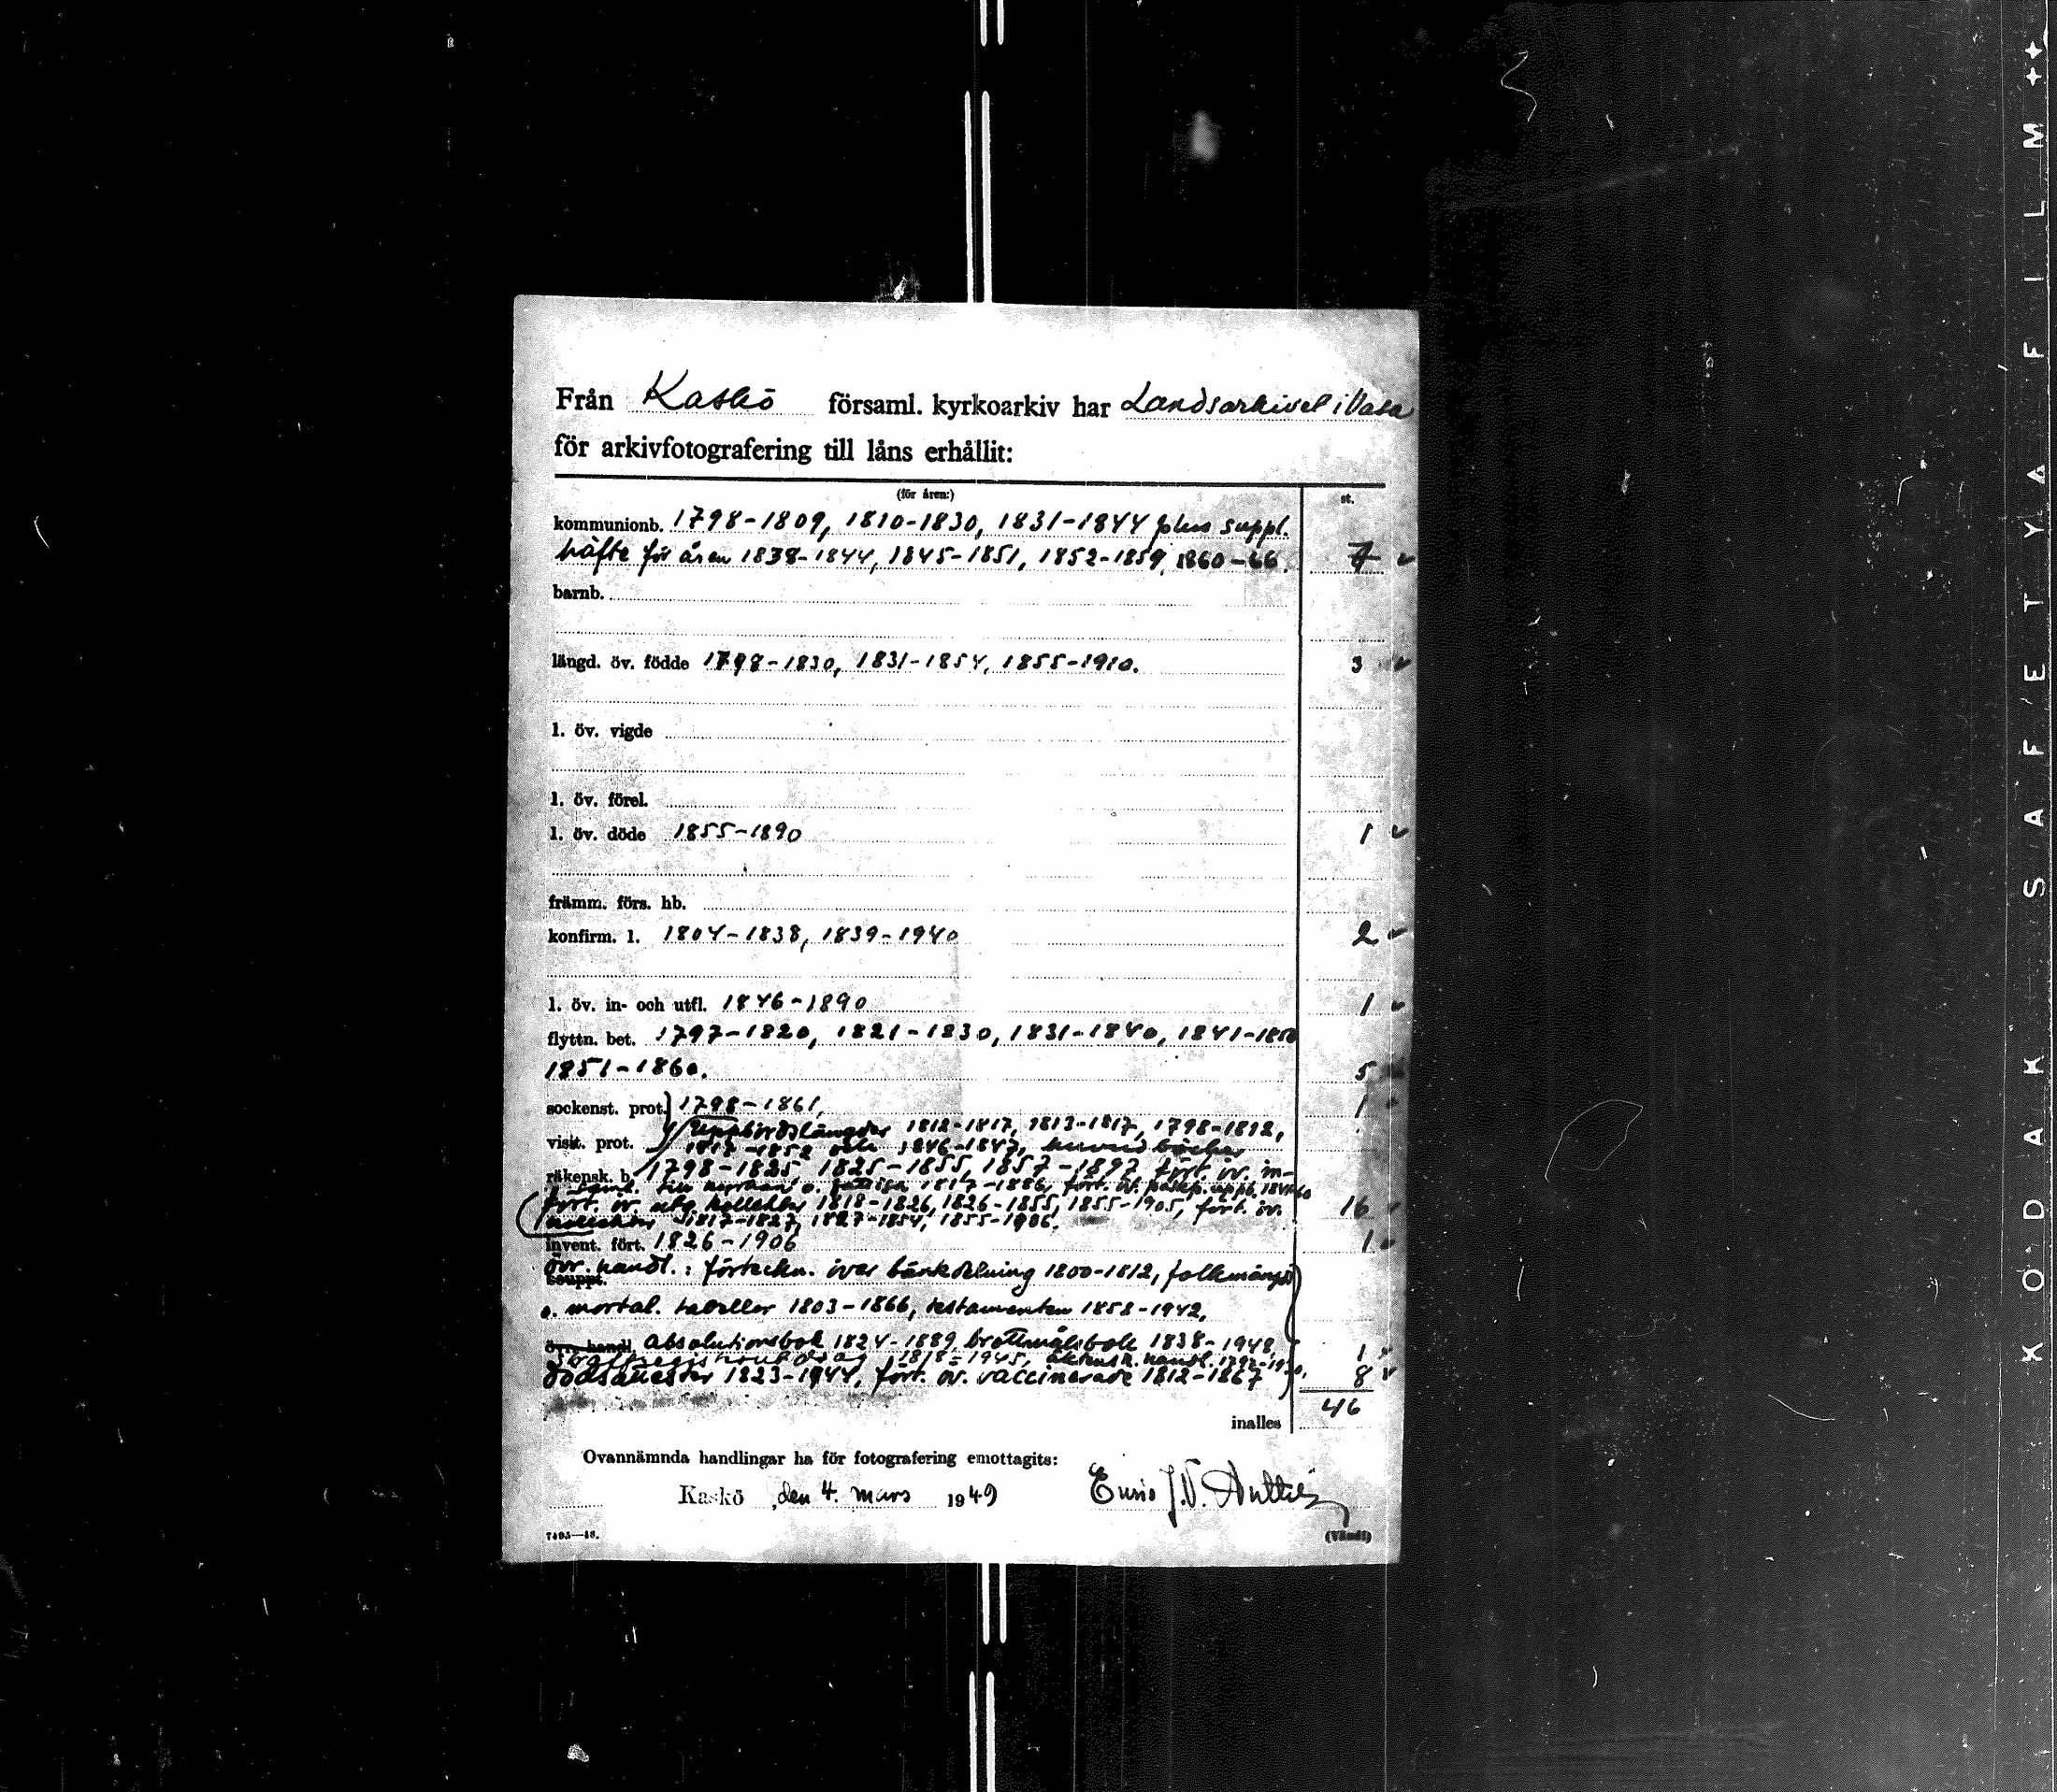 Från Kaskö församl. kyrkoarkiv har Landsarkivet i Vasa
för arkivfotografering till låns erhållit:
(för åren:) st.
kommunionb. 1798-1809, 1810-1830, 1831-1844 plus suppl.
häfte för åren 1838-1844, 1845-1851, 1852-1859, 1860-66. 7
barnb.
längd. öv. födde 1798-1830, 1831-1854, 1855-1910. 3
l. öv. vigde
l. öv. förel.
l. öv. döde 1855-1890 1
främm. förs. hb.
konfirm. l. 1804-1838, 1839-1940 2
l. öv. in- och utfl. 1846-1890 1
flyttn. bet. 1797-1820, 1821-1830, 1831-1840, 1841-1850
1851-1860. 5
sockenst. prot. 1798-1861, 1
Uppbördslängder 1812-1817, 1813-1817, 1798-1812,
visit. prot. 1817-1852 och 1846-1847, huvudböcker
räkensk. b. 1798-1825 1825-1855, 1857-1897 fört. öv. in-
till 1817-1886, fört. öv.
fört. öv. kollekter 1818-1826, 1826-1855, 1855-1905, fört. öv. 16
kollekter 1817-1827, 1827-1854, 1855-1906.
invent. fört. 1826-1906 1
övr. handl.: förteckn. över bänkdelning 1800-1812, folkmängd
o. mortal. tabeller 1803-1866, testamenten 1858-1942,
övr. handl. Absolutionsbok 1824-1889, brottmålsbok 1838-1948, 1
1818-1945, äktensk. handl.
dödsattester 1823-1944, fört. öv. vaccinerade 1812-1867 8
inalles 46
Ovannämnda handlingar ha för fotografering emottagits:
Kaskö, den 4. mars 1949
7493—48. (Vänd!)
KODAK SAFETY A FILM ++